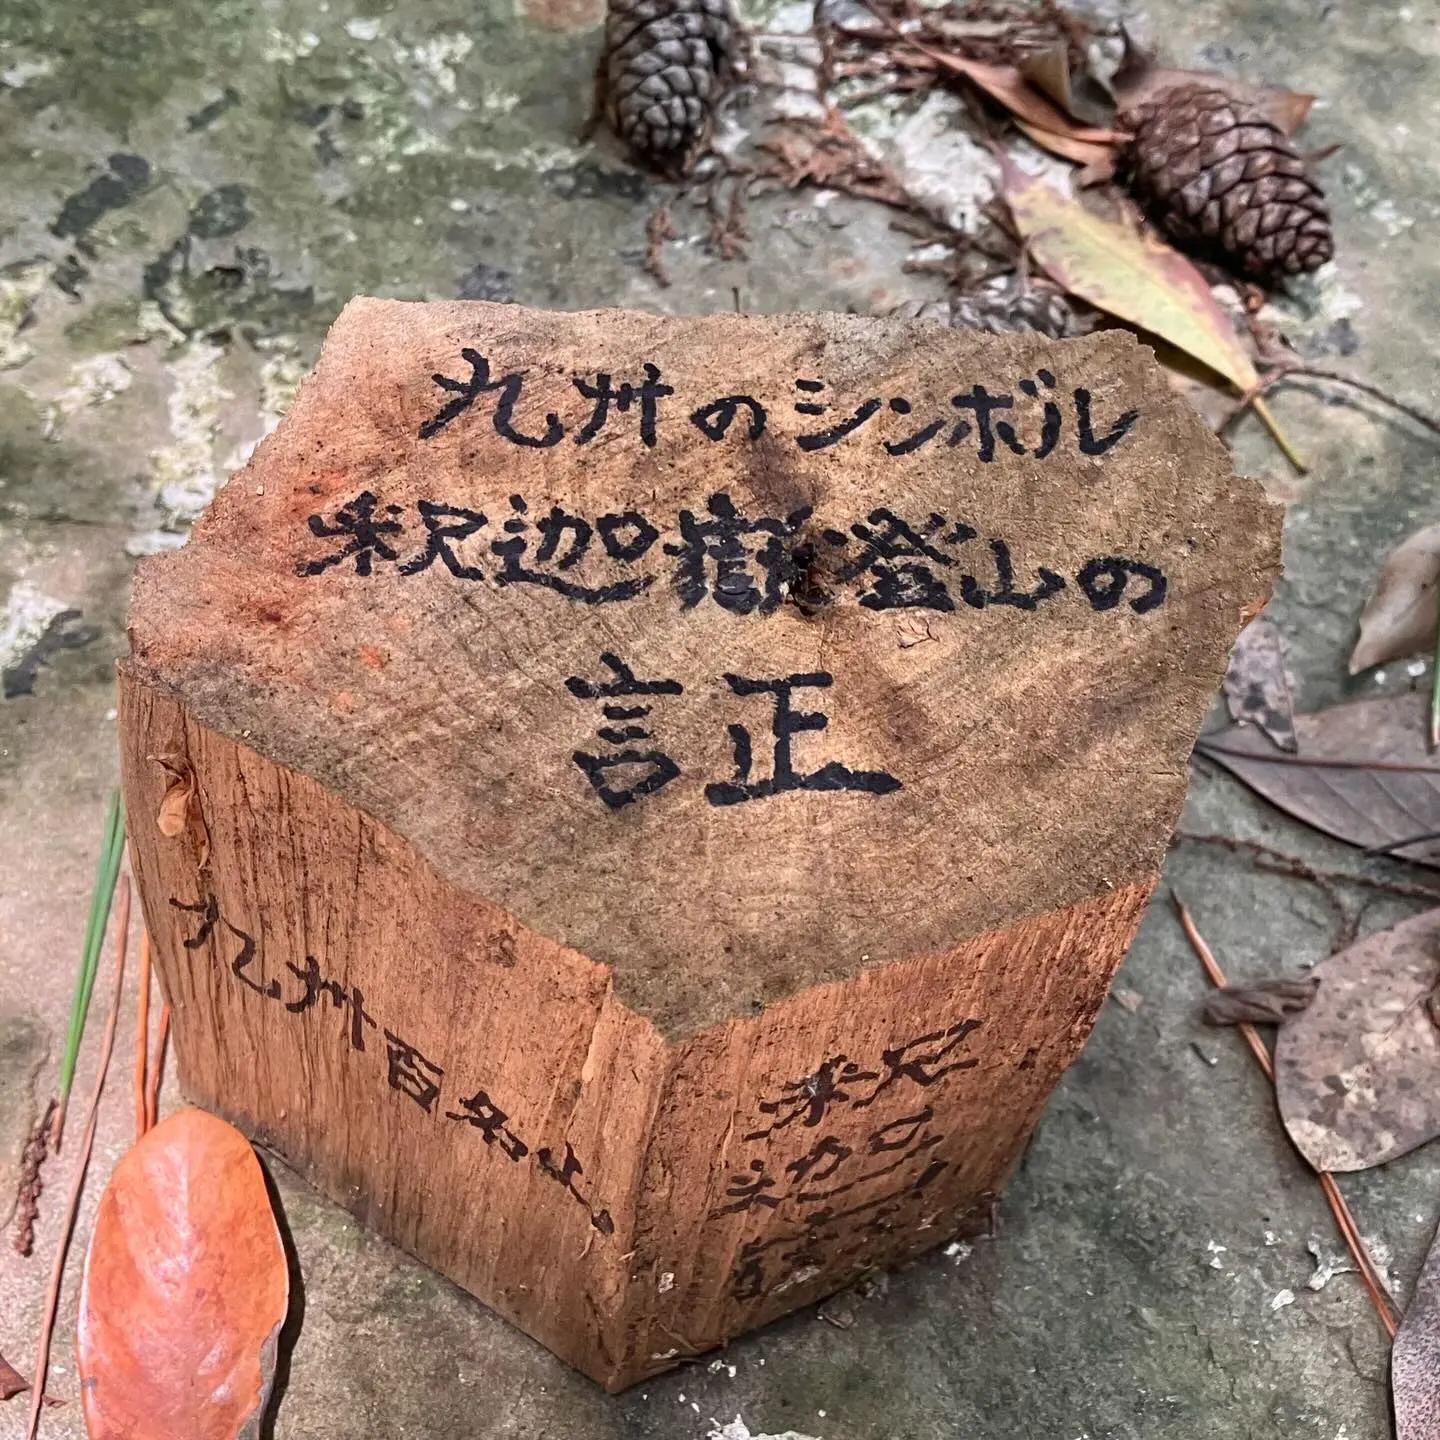 九州のシンボル
釈迦嶽登山の
証
九州百名山
釈
迦
嶽